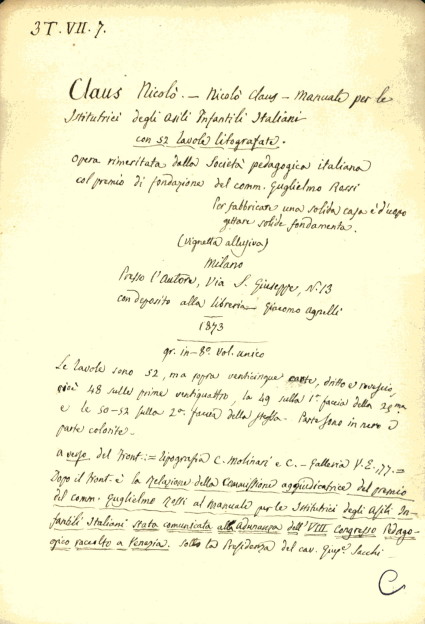 3T. VII. 7.
Claus Nicolò. — Nicolò Claus — Manuale per le
Istitutrici degli Asili Infantili Italiani
con 52 tavole litografate.
Opera rimeritata dalla Società pedagogica italiana
col premio di fondazione del comm. Guglielmo Rossi
Per fabbricare una solida casa è d'uopo
gettare solide fondamenta.
(vignetta allusiva)
Milano
Presso l'Autore, Via S. Giuseppe, N. 13
con deposito alla libreria Giacomo Agnelli
1873
gr. in-8º. vol. unico
Le tavole sono 52, ma sopra venticinque carte, dritto e rovescio,
cioè 48 sulle prime ventiquattro, la 49 sulla 1ª faccia della 25ma
e le 50-52 sulla 2ª faccia della stessa. Parte sono in nero e
parte colorite —
a verso del Front: = tipografia C. Molinari e C. — Galleria V. E. 177. =
Dopo il Front. è la Relazione della Commissione aggiudicatrice del premio
del comm. Guglielmo Rossi al Manuale per le Istitutrici degli Asili In-
fantili Italiani stata comunicata all'Adunanza dell'VIII Congresso Pedago-
gico raccolto a Venezia. sotto la Presidenza del cav. Giuse. Sacchi
C